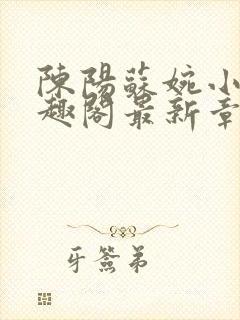 陳陽蘇婉小
趣閣最新章
牙簽弟